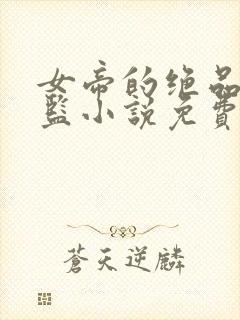 女帝的绝品
蓝小說免費
蒼天逆麟